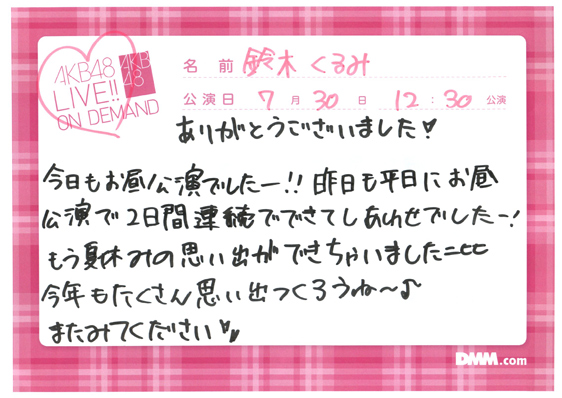 AKB48
LIVE!!
ON DEMAND
AKB
48
名 前 鈴木 くるみ
公演日 7 月 30 日 12 : 30 公演
ありがとうございました♥
今日もお昼公演でしたー!! 昨日も平日にお昼
公演で2日間連続でできてしあわせでしたー!
もう夏休みの思い出ができちゃいました
今年もたくさん思い出つくろうね〜♪
またみてください♥
DMM.com